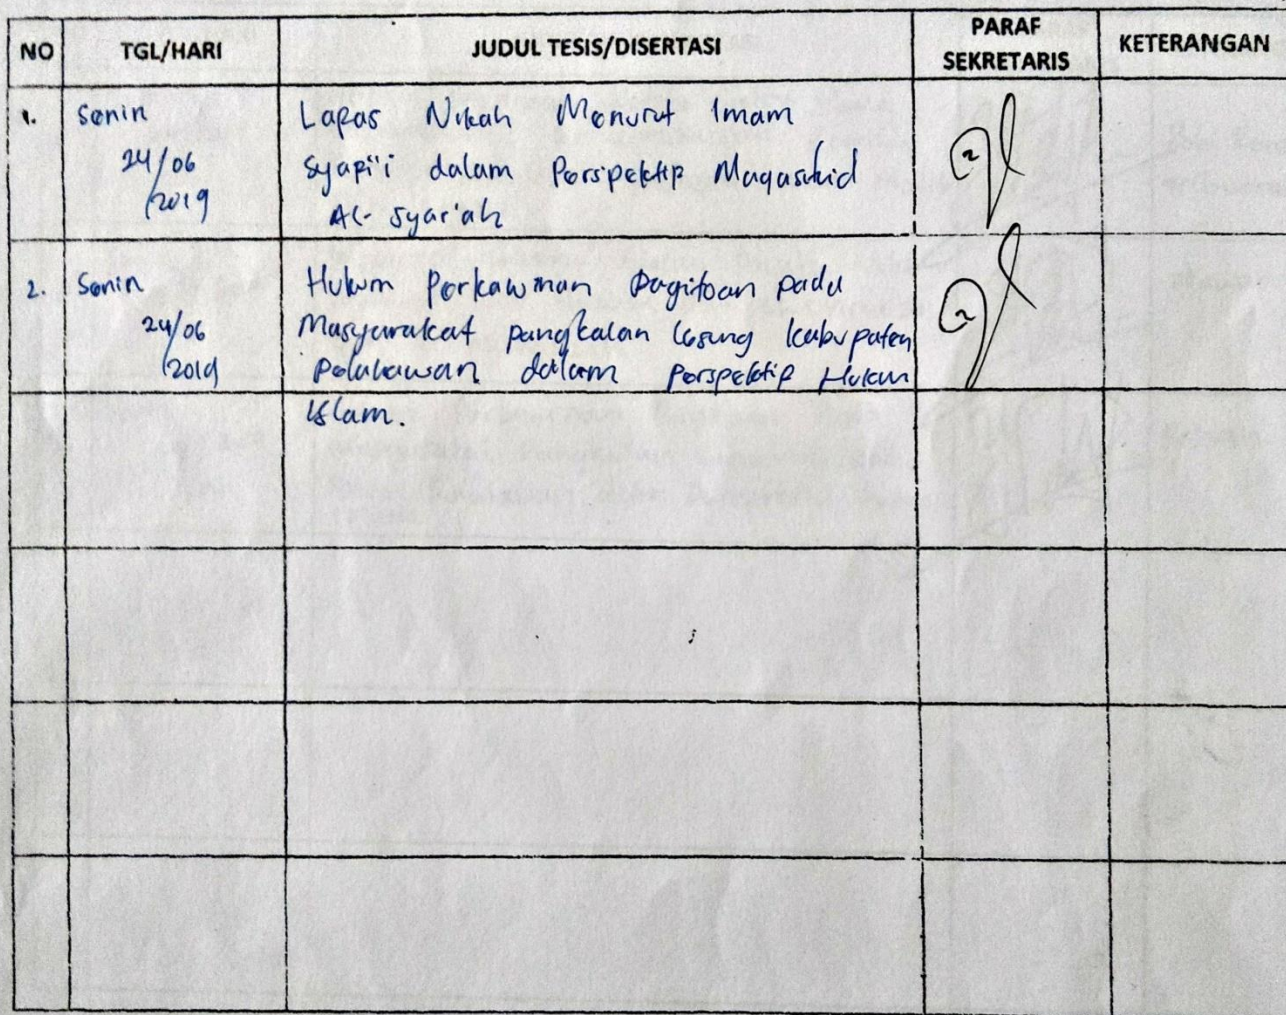 NO TGL/HARI JUDUL TESIS/DISERTASI PARAF SEKRETARIS KETERANGAN
1. Senin Lafas Nikah Menurut Imam
24/06 Syafi'i dalam Perspektif Maqashid
/2019 Al-Syari'ah
2. Senin Hukum Perkawinan pada
24/06 Masyarakat pangkalan Lesung kabupaten
/2019 Pelalawan dalam Perspektif Hukum
Islam.